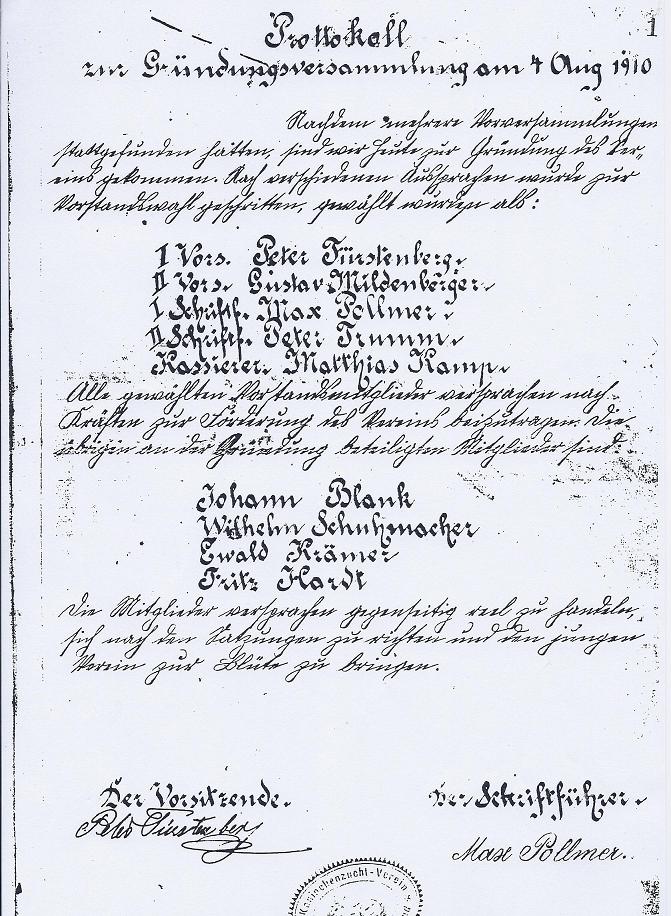 1
Prottokoll
zur Gründungsversammlung am 4 Aug 1910
Nachdem mehrere Vorversammlungen
stattgefunden hatten, sind wir heute zur Gründung des Ver-
eins gekommen. Nach verschiedenen Aussprachen wurde zur
Vorstandswahl geschritten, gewählt wurden als:
I Vors. Peter Fürstenberg.
II Vors. Gustav Mildenberger.
I Schriftf. Max Pollmer.
II Schriftf. Peter Trumm.
Kassierer. Matthias Kamp.
Alle gewählten Vorstandsmitglieder versprachen nach
Kräften zur Förderung des Vereins beizutragen. Die
übrigen an der Gründung beteiligten Mitglieder sind:
Johann Blank
Wilhelm Schuhmacher
Ewald Krämer
Fritz Hardt
Die Mitglieder versprachen gegenseitig reel zu handeln,
sich nach den Satzungen zu richten und den jungen
Verein zur Blüte zu bringen.
Der Vorsitzende.
Der Schriftführer.
Peter Fürstenberg
Max Pollmer.
Kaninchenzucht-Verein